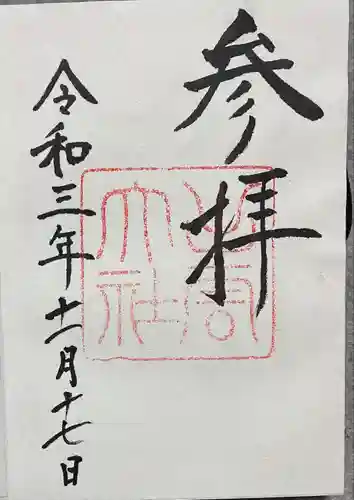 参拝
大社
令和三年十一月十七日